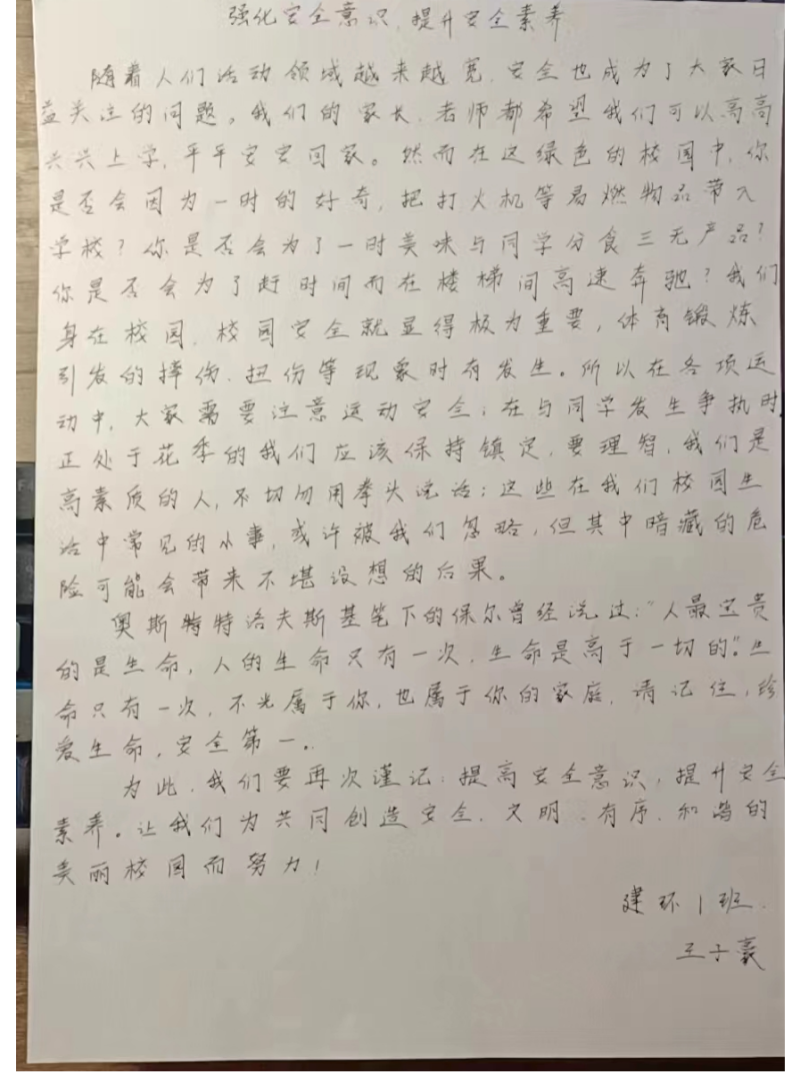 强化安全意识,提升安全素养
随着人们活动领域越来越宽,安全也成为了大家日
益关注的问题。我们的家长、老师都希望我们可以高高
兴兴上学,平平安安回家。然而在这绿色的校园中,你
是否会因为一时的好奇,把打火机等易燃物品带入
学校?你是否会为了一时美味与同学分食三无产品?
你是否会为了赶时间而在楼梯间高速奔驰?我们
身在校园,校园安全就显得极为重要,体育锻炼
引发的摔伤、扭伤等现象时有发生。所以在各项运
动中,大家需要注意运动安全;在与同学发生争执时,
正处于花季的我们应该保持镇定,要理智,我们是
高素质的人,不切勿用拳头说话;这些在我们校园生
活中常见的小事,或许被我们忽略,但其中暗藏的危
险可能会带来不堪设想的后果。
奥斯特特洛夫斯基笔下的保尔曾经说过:“人最宝贵
的是生命,人的生命只有一次,生命是高于一切的”。生
命只有一次,不光属于你,也属于你的家庭,请记住,珍
爱生命,安全第一。
为此,我们要再次谨记,提高安全意识,提升安全
素养。让我们为共同创造安全、文明、有序、和谐的
美丽校园而努力!
建环1班.
王子豪